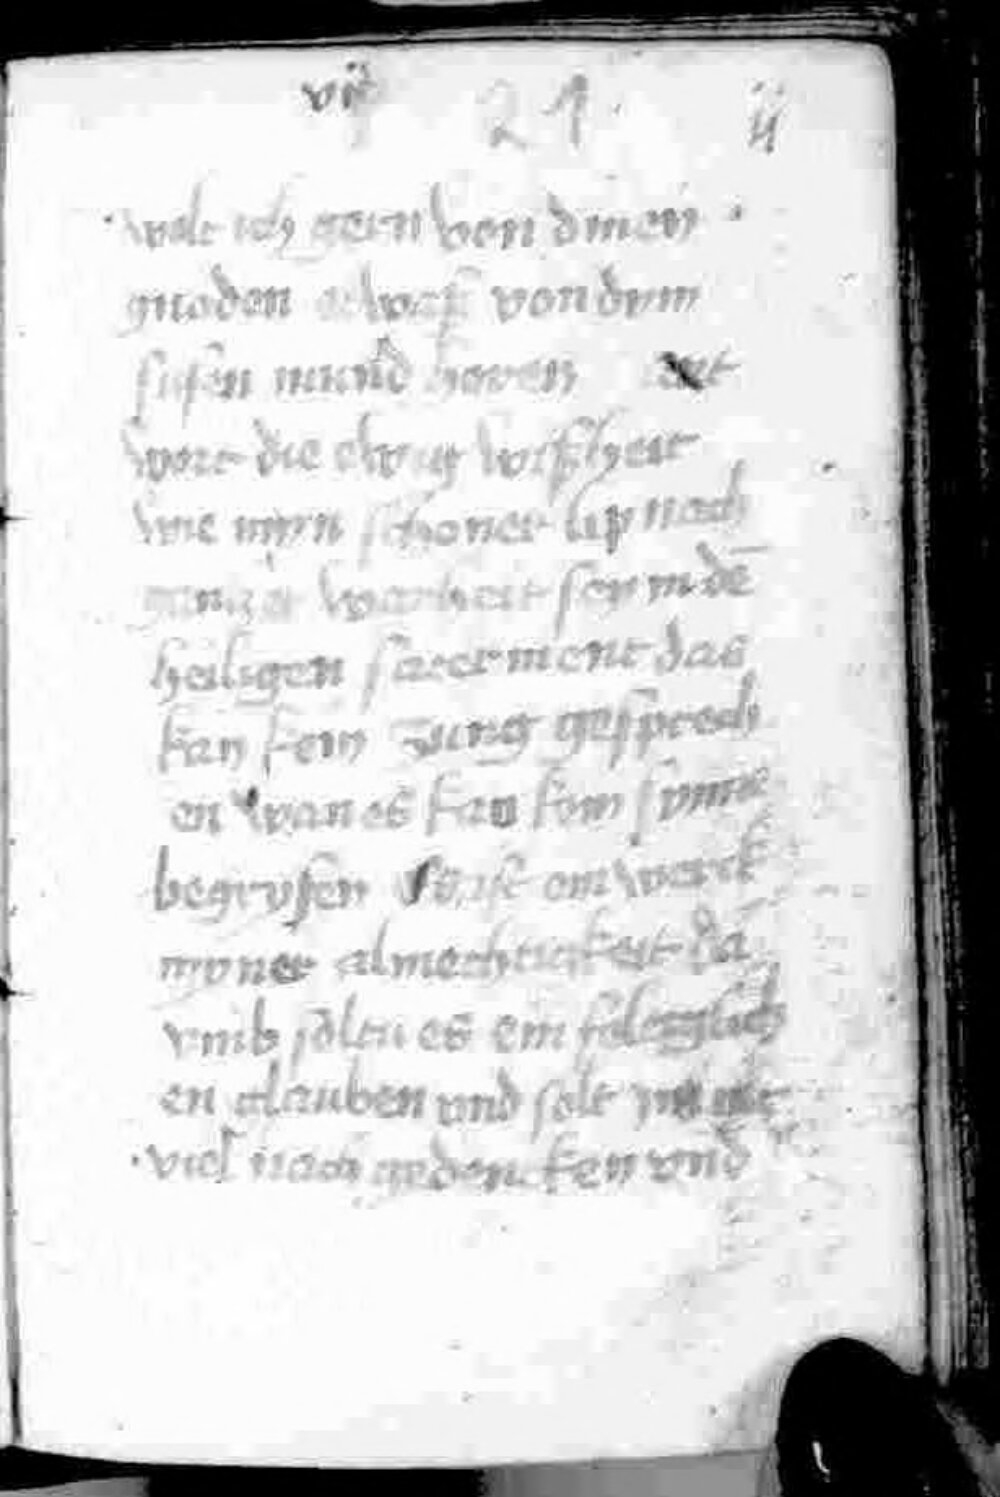 vij 21 ij
wolt ich gern von dinen
gnoden von dym
susen mund horen
wort die ewig wißheit
wie myn schoner lip noch
gantzer warheit sey in dē
heiligen sacerment das
kan kein zung gesprech
en wan es kan kein synne
begryfen ein werck
myner almechtickeit da
vmb solen es ein
en glauben vnd solt
viel nach gedencken vnd